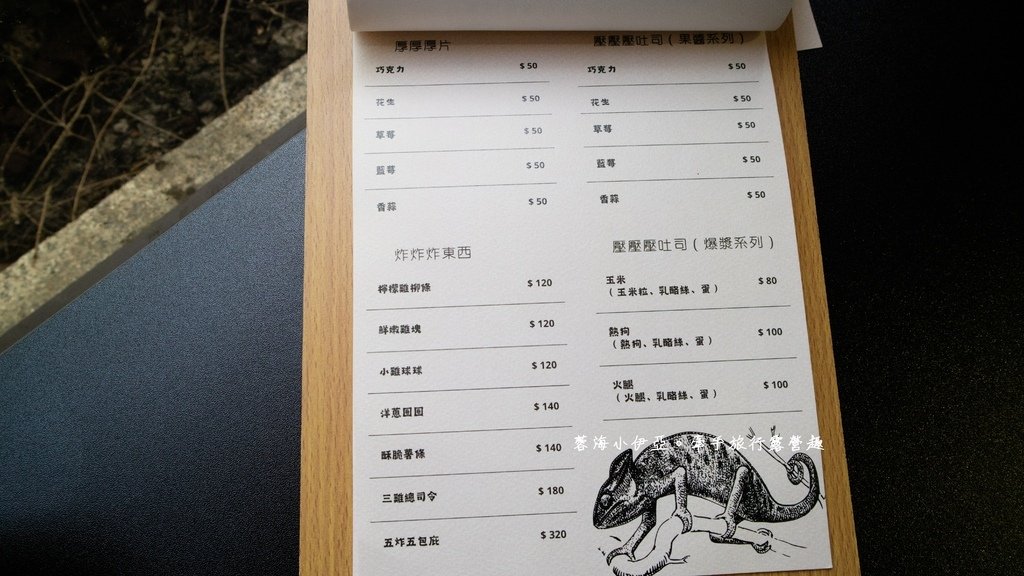 厚厚厚片
巧克力 $ 50
花生 $ 50
草莓 $ 50
藍莓 $ 50
香蒜 $ 50
炸炸炸東西
檸檬雞柳條 $ 120
鮮嫩雞塊 $ 120
小雞球球 $ 120
洋蔥圈圈 $ 140
酥脆薯條 $ 140
三雞總司令 $ 180
五炸五包庇 $ 320
壓壓壓吐司 ( 果醬系列 )
巧克力 $ 50
花生 $ 50
草莓 $ 50
藍莓 $ 50
香蒜 $ 50
壓壓壓吐司 ( 爆漿系列 )
玉米 $ 80
( 玉米粒、乳酪絲、蛋 )
熱狗 $ 100
( 熱狗、乳酪絲、蛋 )
火腿 $ 100
( 火腿、乳酪絲、蛋 )
蓉海小伊亞。牽手旅行露營趣